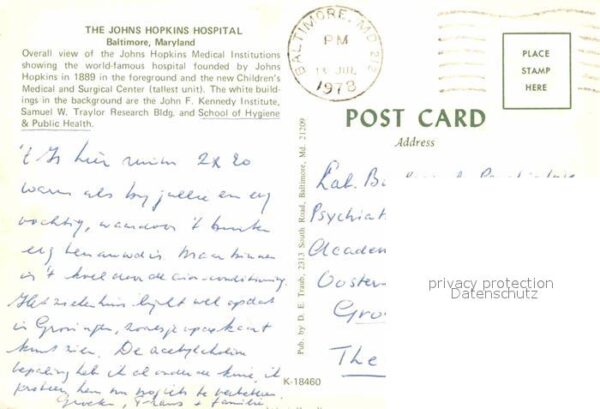 THE JOHNS HOPKINS HOSPITAL
Baltimore, Maryland
Overall view of the Johns Hopkins Medical Institutions
showing the world-famous hospital founded by Johns
Hopkins in 1889 in the foreground and the new Children's
Medical and Surgical Center (tallest unit). The white build-
ings in the background are the John F. Kennedy Institute,
Samuel W. Traylor Research Bldg. and School of Hygiene
& Public Health.
't Is hier ruim 2x zo
warm als bij jullie en erg
vochtig, waardoor 't buiten
erg benauwd is. Maar binnen
is 't koel door de air-conditioning.
Het ziekenhuis lijkt wel op dat
in Groningen, zoals je op de kaart
kunt zien. De acetylcholine
bepaling heb ik al onder de knie, ik
probeer hem nu nog iets te verbeteren.
Groeten, Frans + familie
BALTIMORE, MD 212
PM
JUL
1978
PLACE
STAMP
HERE
POST CARD
Address
Lab.
Psychiat
Academ
Ooster
Gro
The
Pub. by D. E. Traub, 2313 South Road, Baltimore, Md. 21209
K-18460
privacy protection
Datenschutz